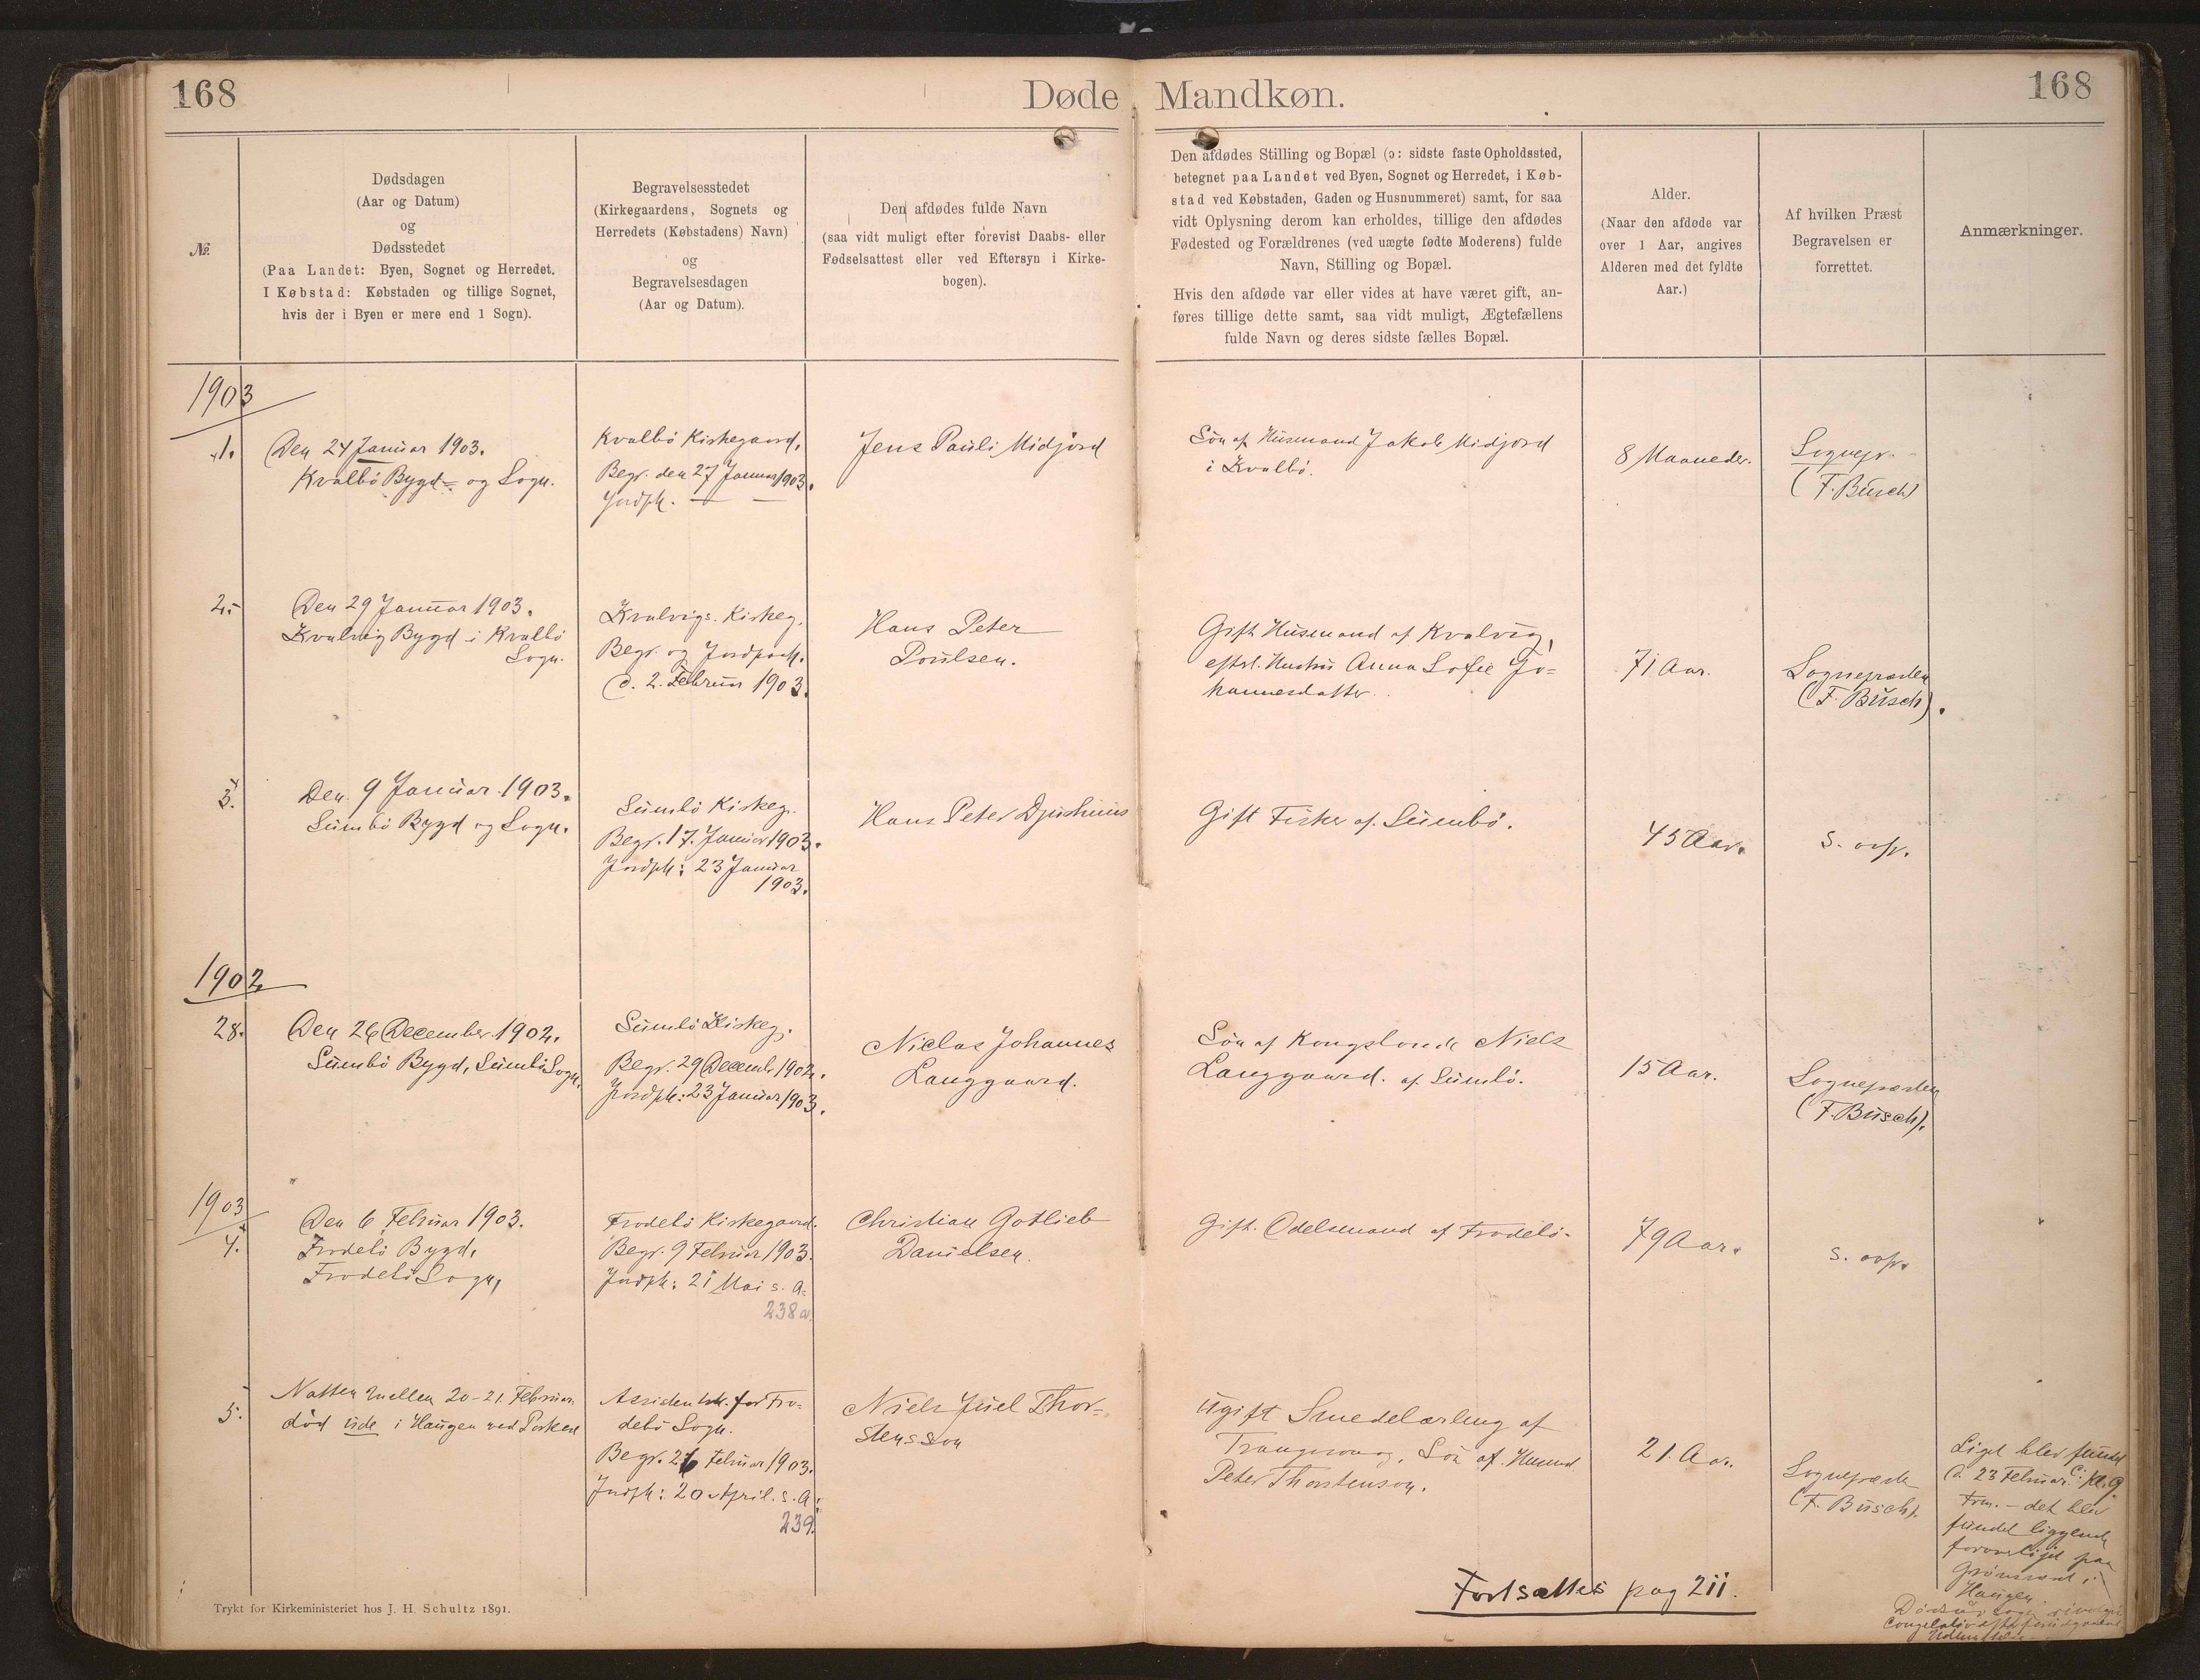 168
Døde Mandkøn.
168
№
Dødsdagen
(Aar og Datum)
og
Dødsstedet
(Paa Landet: Byen, Sognet og Herredet.
I Købstad: Købstaden og tillige Sognet,
hvis der i Byen er mere end 1 Sogn).
Begravelsesstedet
(Kirkegaardens, Sognets og
Herredets (Købstadens) Navn)
og
Begravelsesdagen
(Aar og Datum).
Den afdødes fulde Navn
(saa vidt muligt efter forevist Daabs- eller
Fødselsattest eller ved Eftersyn i Kirke-
bogen).
Den afdødes Stilling og Bopæl (ɔ: sidste faste Opholdssted,
betegnet paa Landet ved Byen, Sognet og Herredet, i Køb-
stad ved Købstaden, Gaden og Husnummeret) samt, for saa
vidt Oplysning derom kan erholdes, tillige den afdødes
Fødested og Forældrenes (ved uægte fødte Moderens) fulde
Navn, Stilling og Bopæl.
Hvis den afdøde var eller vides at have været gift, an-
føres tillige dette samt, saa vidt muligt, Ægtefællens
fulde Navn og deres sidste fælles Bopæl.
Alder.
(Naar den afdøde var
over 1 Aar, angives
Alderen med det fyldte
Aar.)
Af hvilken Præst
Begravelsen er
forrettet.
Anmærkninger.
1903
1.
Den 24 Januar 1903.
Kvalbö Bygd- og Sogn.
Kvalbö Kirkegaard.
Begr. den 27 Januar 1903.
Jordpk. — —
Jens Pauli Midjord
Sön af Husmand Jakob Midjord
i Kvalbö.
8 Maaneder.
Sognepr.
(F. Busch)
2.
Den 29 Januar 1903.
Kvalvig Bygd i Kvalbö
Sogn.
Kvalvigs. Kirkeg.
Begr. og Jordpaak.
d. 2. Februar 1903.
Hans Peter
Poulsen.
Gift Husmand af Kvalvig,
efterl. Hustru Anna Sofie Jo=
hannesdatter.
71 Aar.
Sognepræsten
(F. Busch).
3.
Den 9 Januar 1903.
Sumbö Bygd og Sogn.
Sumbö Kirkeg.
Begr. 17. Januar 1903.
Jordpk: 23 Januar
1903.
Hans Peter Djurhuus
Gift Fisker af Sumbö.
45 Aar.
s. ovfr.
1902
28.
Den 26 December 1902.
Sumbö Bygd, Sumbö Sogn.
Sumbö Kirkeg.
Begr. 29 Decemb. 1902.
Jordpk: 23 Januar 1903.
Niclas Johannes
Langgaard.
Sön af Kongsbonde Niels
Langgaard. af Sumbö.
15 Aar.
Sognepræsten
(F. Busch).
1903
4.
Den 6 Februar 1903.
Frodebö Bygd,
Frodebö Sogn,
Frodebö Kirkegaard.
Begr. 9 Februar 1903.
Jordpk: 21 Mai s. A.
238a
Christian Gotlieb
Danielsen.
Gift. Odelsmand af Frodebö.
79 Aar.
s. ovfr.
5.
Natten mellem 20-21. Februar.
död ude i Haugen ved Porkeri
Assistentsk. for Fro-
debö Sogn.
Begr. 26 Februar 1903.
Jordpk: 20 April. s. A.
239.
Niels Juel Thor=
stensson
ugift Smedelærling af
Trangisvaag, Sön af Husmd
Peter Thorstenson.
21. Aar.
Sognepræsten
(F. Busch).
Liget blev fundet
d. 23 Februar c. kl. 9
Frm. - det blev
fundet liggende
paa
i
Haugen.
Fortsættes pag 211.
Trykt for Kirkeministeriet hos J. H. Schultz 1891.